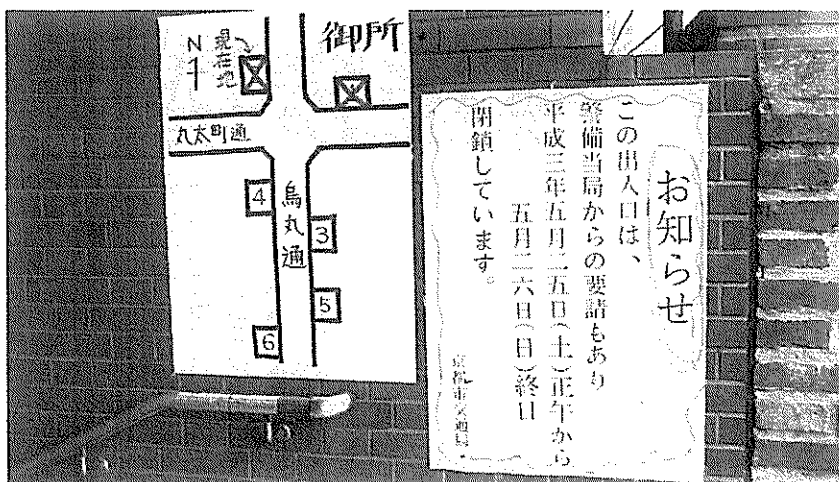 御所
N
現在地
丸太町通
烏丸通
4
3
5
6
お知らせ
この出入口は、
警備当局からの要請もあり
平成三年五月二五日(土)正午から
五月二六日(日)終日
閉鎖しています。
京都市交通局